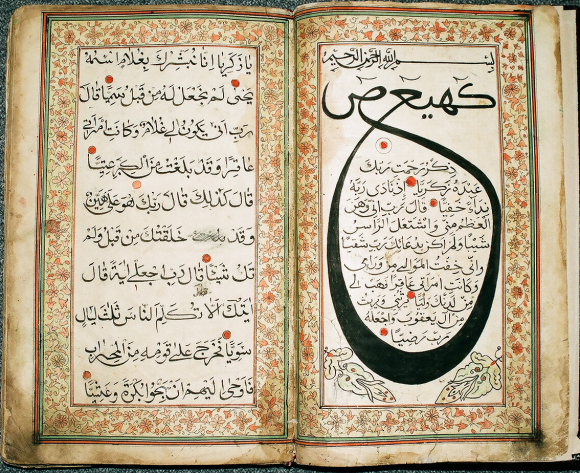 بِسْمِ اللهِ الرَّحْمٰنِ الرَّحِيْمِ
كهيعص
ذِكْرُ رَحْمَتِ رَبِّكَ
عَبْدَهُ زَكَرِيَّا اِذْ نَادٰى رَبَّهُ
نِدَاءً خَفِيًّا قَالَ رَبِّ اِنِّى وَهَنَ
الْعَظْمُ مِنِّى وَاشْتَعَلَ الرَّاْسُ
شَيْبًا وَلَمْ اَكُنْ بِدُعَائِكَ رَبِّ شَقِيًّا
وَاِنِّى خِفْتُ الْمَوَالِىَ مِنْ وَرَائِى
وَكَانَتِ امْرَاَتِى عَاقِرًا فَهَبْ لِى
مِنْ لَدُنْكَ وَلِيًّا يَرِثُنِى وَيَرِثُ
مِنْ اٰلِ يَعْقُوبَ وَاجْعَلْهُ
رَبِّ رَضِيًّا
يَا زَكَرِيَّا اِنَّا نُبَشِّرُكَ بِغُلَامٍ اسْمُهُ
يَحْيٰى لَمْ نَجْعَلْ لَهُ مِنْ قَبْلُ سَمِيًّا قَالَ
رَبِّ اَنّٰى يَكُونُ لِى غُلَامٌ وَكَانَتِ امْرَاَتِى
عَاقِرًا وَقَدْ بَلَغْتُ مِنَ الْكِبَرِ عِتِيًّا
قَالَ كَذٰلِكَ قَالَ رَبُّكَ هُوَ عَلَىَّ هَيِّنٌ
وَقَدْ خَلَقْتُكَ مِنْ قَبْلُ وَلَمْ
تَكُ شَيْئًا قَالَ رَبِّ اجْعَلْ لِى اٰيَةً قَالَ
اٰيَتُكَ اَلَّا تُكَلِّمَ النَّاسَ ثَلٰثَ لَيَالٍ
سَوِيًّا فَخَرَجَ عَلٰى قَوْمِهِ مِنَ الْمِحْرَابِ
فَاَوْحٰى اِلَيْهِمْ اَنْ سَبِّحُوا بُكْرَةً وَعَشِيًّا